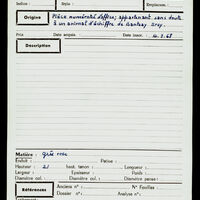 Indice : Style : Emplacem. :
Origine Pièce numérotée d'office; appartenant sans doute
à un animal d'échiffre de Banteay Srey.
Prix Date acquis. Date inscr. : 10.9.68
Description
Matière : grès rose
Enduit : Patine :
Hauteur : 21 haut. tenon : Longueur :
Largeur : Epaisseur : Poids :
Diamètre col. : Diamètre panse :
Références Anciens n° : N° Fouilles
Dossier : Analyse n° :